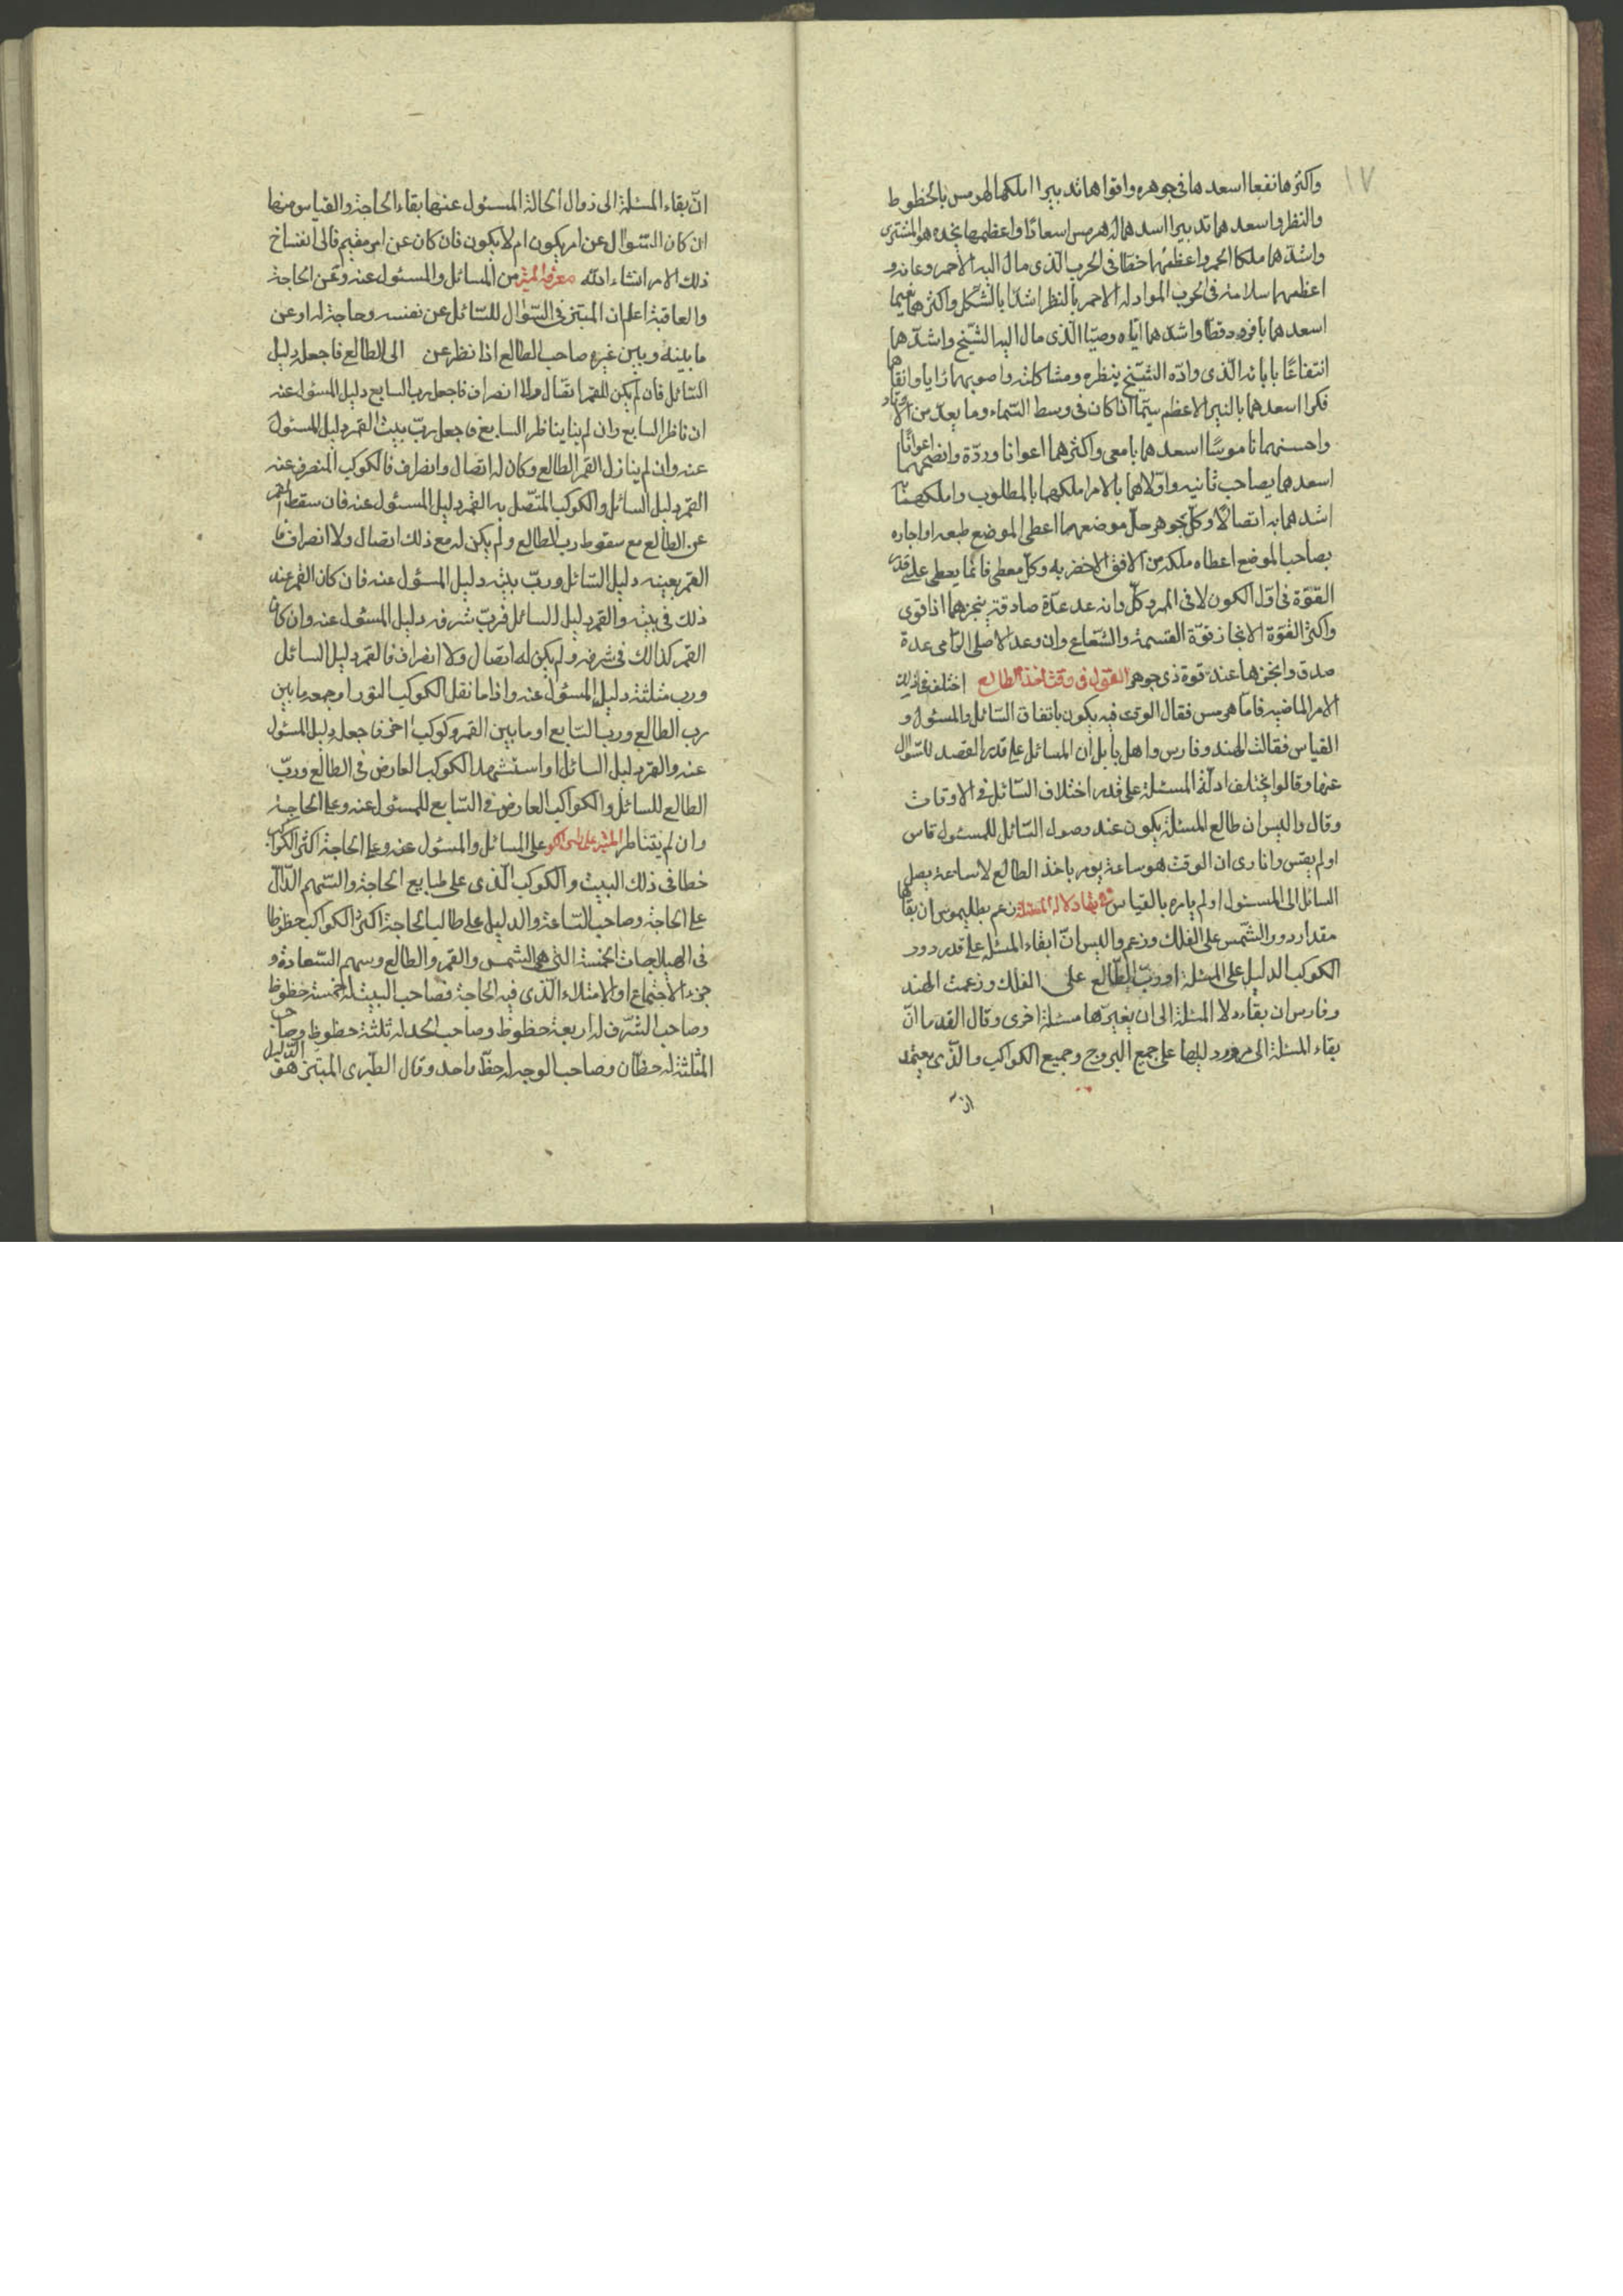 ١٧
واكثرها نفعا اسعدها فى جوهره واقواها تدبيرا املكها لهرمس بالحظوظ
والنظر واسعدهما تدبيرا اسدهما له هرمس اسعادًا واعظمها نجده هو المشترى
واشدهما ملكا الحمر واعظمهما خفا فى الحرب الذى مال اليه الاحمر وعانه و
اعظمهما سلامة فى الحرب المواد له الاحمر بالنظر اشدا بالشكل واكثرهما نعيما
اسعدهما بافروديقطا واشدهما اياه وصبّا الذى مال اليه الشيخ واشدهما
انتفاعًا بابائه الذى وادّه الشيخ بنظره ومشاكلته واصوبهما رايا وانقاهما
فكرا اسعدهما بالنير الاعظم سيّما اذا كان فى وسط السماء وما يعدّ من الاوتاد
واحسنهما ناموسًا اسعدهما بامعى واكثرهما اعوانا وردّة وانصحهما اعوانًا
اسعدهما بصاحب ثانيه واولاهما بالامر املكهما بالمطلوب واملكهما
اشدهما به اتصالًا وكل جوهر حلّ موضعهما اعطى الموضع طبعه او اجاره
بصاحب الموضع اعطاه ملكه من الافق الاخضر به وكل معطى فانما يعطى على قدر
القوّة فى اوّل الكون لا فى المرد كلّ وانه عد عدّة صادقة ينجزهما اذا قوى
واكثر القوة الانجاز قوّة القسمة والشعاع وان وعد الاصلى الرامى عدة
صدق وانجزها عند قوة ذى جوهر القول فى وقت اخذ الطالع اختلف فى ذلك
الامر الماضيه فاما هرمس فقال الوقت فيه يكون باتفاق السائل والمسئول و
القياس فقالت الهند وفارس واهل بابل ان المسائل على قدر القصد للسّوال
عنها وقالوا يختلف ادلّة المسئلة على قدر اختلاف السّائل فى الاوقات
وقال واليس ان طالع المسئلة يكون عند وصول السّائل للمسئول قاس
اولم يقس وانا ارى ان الوقت هو ساعة يومر باخذ الطالع لا ساعة يصل
السائل الى المسئول اولم يامره بالقياس فى بقاء دلالة المسئلة زعم بطليموس ان بقاها
مقدار دور الشمس على الفلك وزعم واليس انّ ابقاء المسئلة على قدر دور
الكوكب الدليل على المسئلة او ربّ الطالع على الفلك وزعمت الهند
وفارس ان بقاء دلا المسئلة الى ان يغيرها مسئلة اخرى وقال القدما انّ
بقاء المسئلة الى مرور دليلها على جميع البروج وجميع الكواكب والذى يعتمد
انّ
انّ بقاء المسئلة الى زوال الحالة المسئول عنها بقاء الحاجة والقياس منها
ان كان السّوال عن امر يكون ام لا يكون فان كان عن امر مقيم فالى انفساخ
ذلك الامر انشاء الله معرفة المبتز من المسائل والمسئول عنه وعن الحاجة
والعاقبة اعلم ان المبتز فى السّوال للسّائل عن نفسه وحاجة له او عن
ما بينه وبين غيره صاحب الطالع اذا نظر عن الى الطالع فاجعله دليل
السّائل فان لم يكن للقمر اتصال ولا انصراف فاجعل رب السابع دليل المسئول عنه
ان ناظر السابع وان لم يناظر السابع فاجعل ربّ بيت القمر دليل المسئول
عنه وان لم ينازل القمر الطالع وكان له اتصال وانصراف فالكوكب المنصرف عنه
القمر دليل السائل والكوكب المتّصل به القمر دليل المسئول عنه فان سقط القمر
عن الطالع مع سقوط رب الطالع ولم يكن له مع ذلك اتصال ولا انصراف فا
القمر بعينه دليل السّائل وربّ بيته دليل المسئول عنه فان كان القمر عند
ذلك فى بيته والقمر دليل للسائل فربّ شرفه دليل المسئول عنه وان كان
القمر كذالك فى شرفه ولم يكن له اتصال ولا انصراف فالقمر دليل السائل
ورب مثلثته دليل المسئول عنه واذا ما نقل الكوكب النور او جمعه ما بين
رب الطالع ورب السّابع او ما بين القمر وكوكب اخر فاجعله دليل المسئول
عنه والقمر دليل السائل او استشهد الكوكب العارض فى الطالع وربّ
الطالع للسائل والكواكب العارض فى السّابع للمسئول عنه وعلى الحاجة
وان لم يتناظر على السائل والمسئول عنه وعلى الحاجة اكثر الكواكب
خطا فى ذلك البيت والكوكب الّذى على طبايع الحاجة والسّهم الدّالّ
على الحاجة وصاحب السّاعة والدليل على طالب الحاجة اكثر الكواكب حظوظا
فى الهيلاجات الخمسة التى هى الشمس والقمر والطالع وسهم السّعادة و
جزء الاجتماع او الامتلاء الّذى فيه الحاجة فصاحب البيت له خمسة حظوظ
وصاحب الشّرف له اربعة حظوظ وصاحب الحد له ثلثة حظوظ وصاحب
المثلثة له حظان وصاحب الوجه له حظّ واحد وقال الطبرى المبتز هو الدّليل